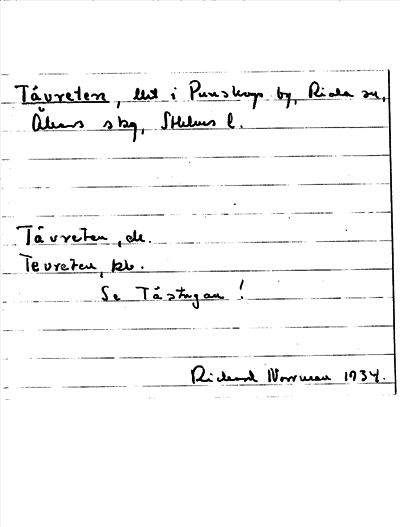 Tåvreten, lht i Punskogs by, Riala sn,
Åkers skg, Sthlms l.
Tåvreten, de.
Tevreten, kb.
Se Tåstugan!
Richard Norrman 1934.